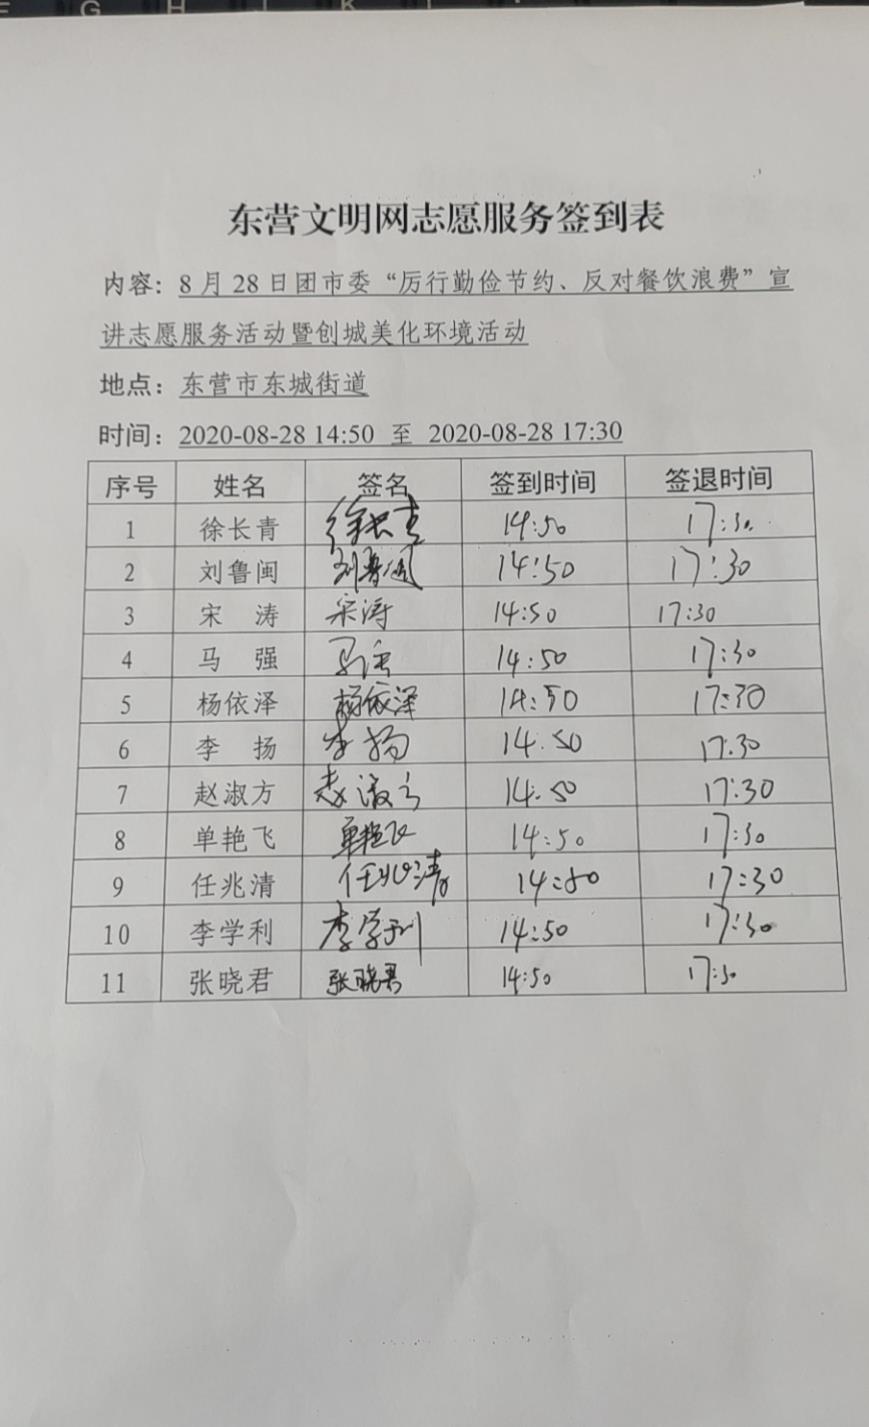 东营文明网志愿服务签到表
内容：8月28日团市委“厉行勤俭节约、反对餐饮浪费”宣
讲志愿服务活动暨创城美化环境活动
地点：东营市东城街道
时间：2020-08-28 14:50 至 2020-08-28 17:30
序号 姓名 签名 签到时间 签退时间
1 徐长青 徐长青 14:50 17:30
2 刘鲁闽 刘鲁闽 14:50 17:30
3 宋 涛 宋涛 14:50 17:30
4 马 强 马强 14:50 17:30
5 杨依泽 杨依泽 14:50 17:30
6 李 扬 李扬 14:50 17:30
7 赵淑方 赵淑方 14:50 17:30
8 单艳飞 单艳飞 14:50 17:30
9 任兆清 任兆清 14:50 17:30
10 李学利 李学利 14:50 17:30
11 张晓君 张晓君 14:50 17:30